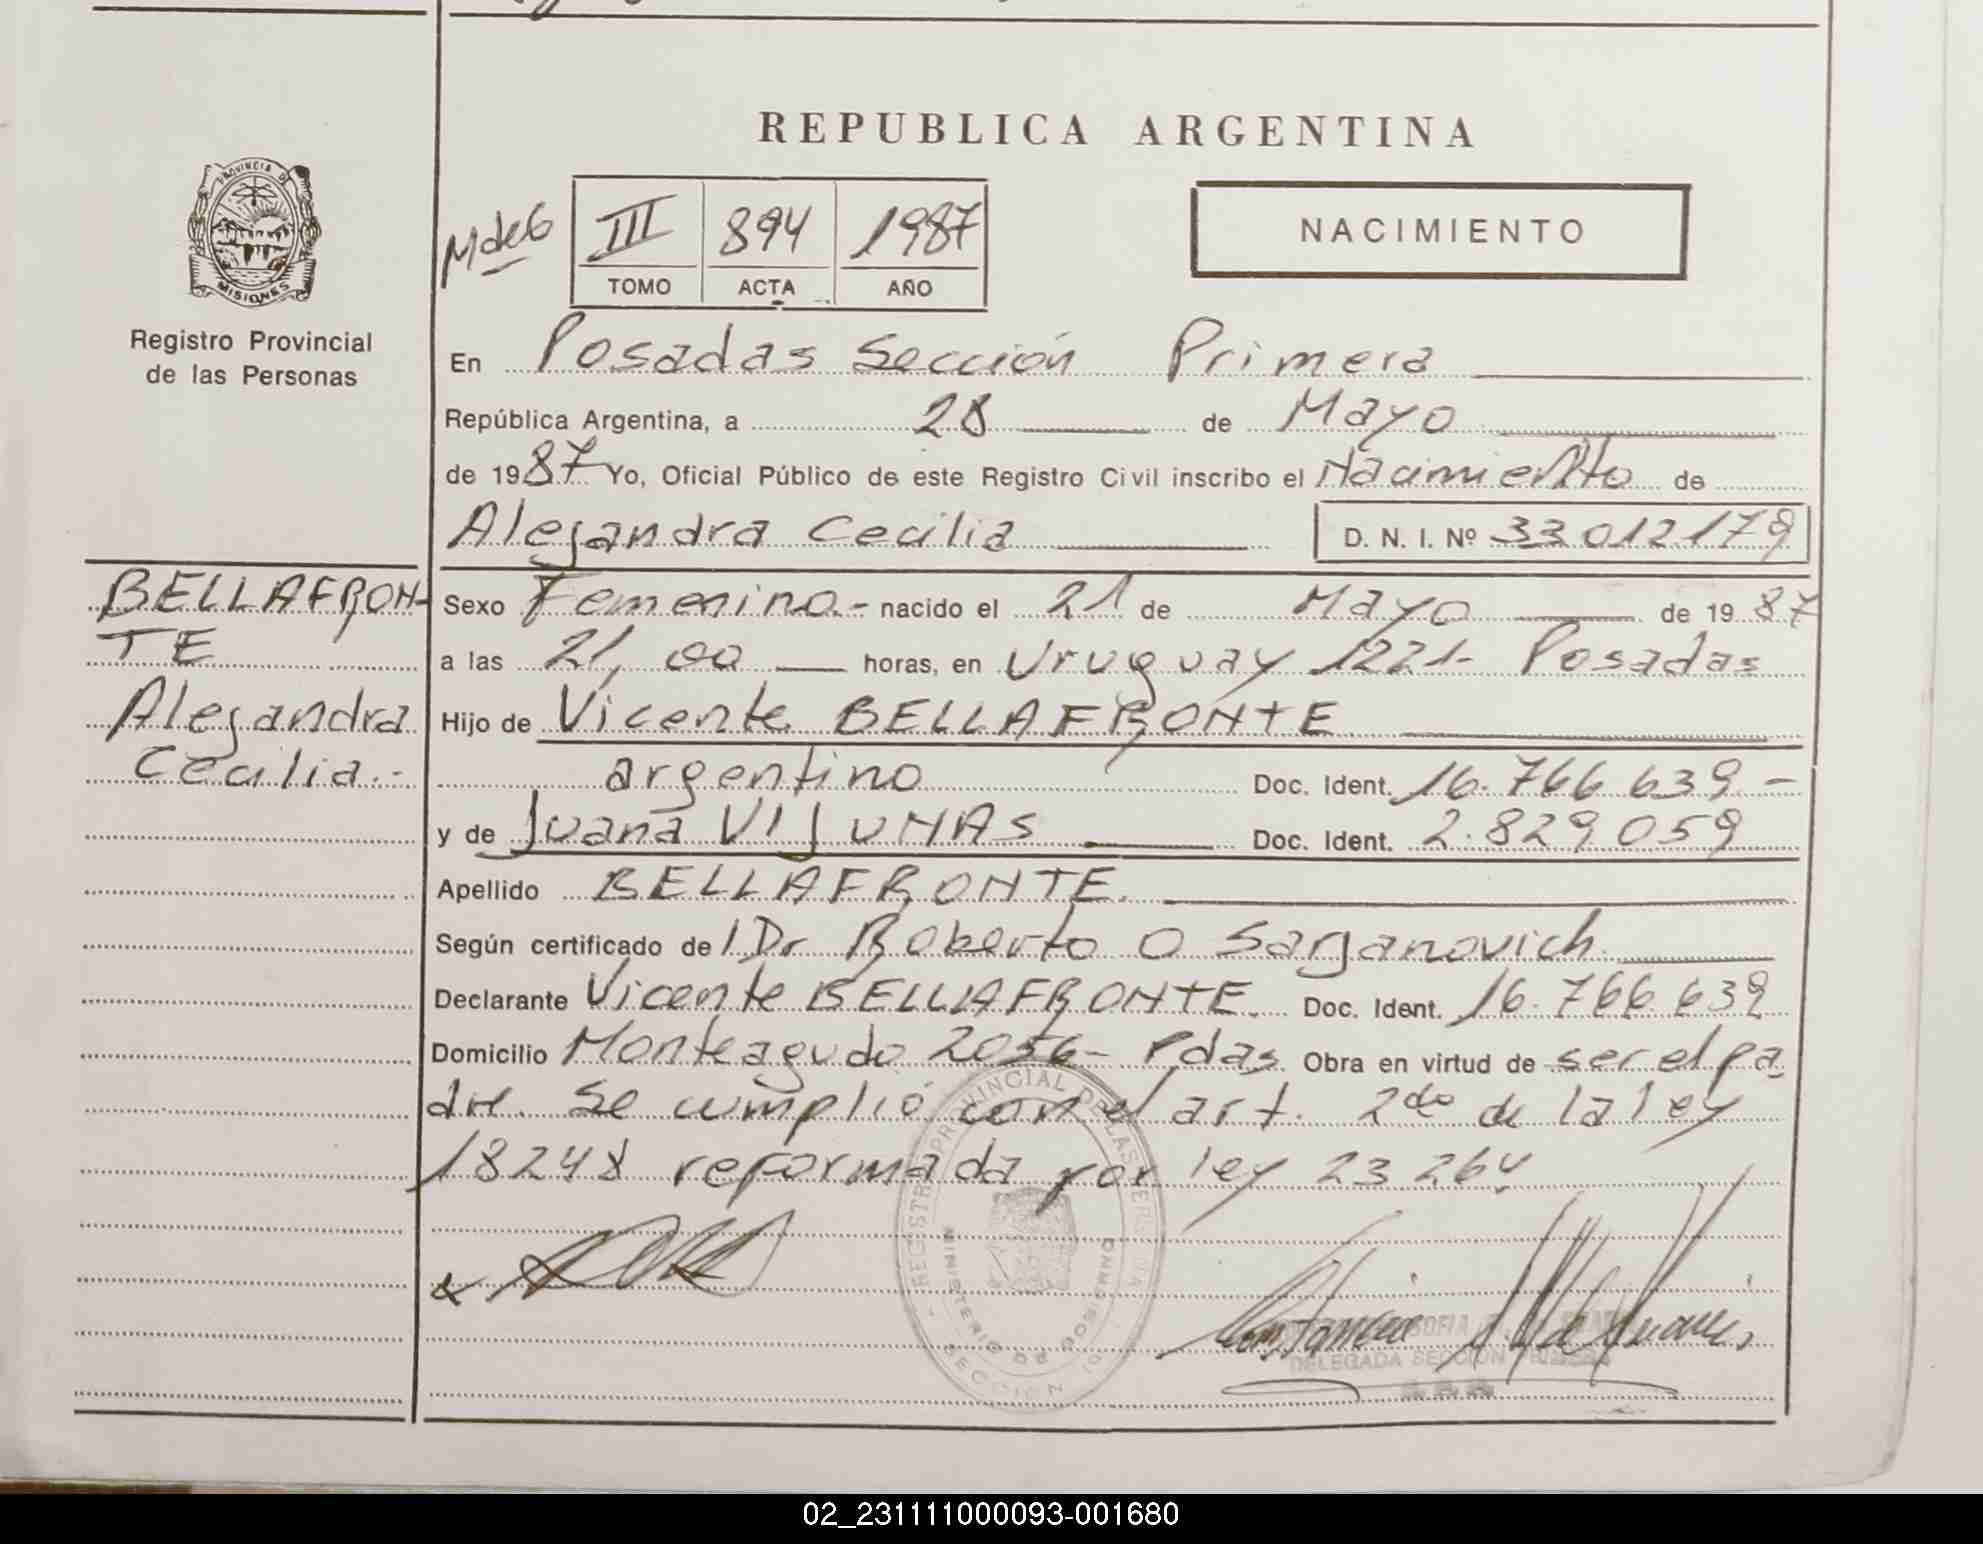 REPUBLICA ARGENTINA
PROVINCIA DE
MISIONES
Registro Provincial
de las Personas
MdeG
III 894 1987
TOMO ACTA AÑO
NACIMIENTO
En Posadas Sección Primera
República Argentina, a 28 de Mayo
de 1987 Yo, Oficial Público de este Registro Civil inscribo el Nacimiento de
Alejandra Cecilia D. N. I. Nº 33 012 179
BELLAFRON-
TE
Alejandra
Cecilia.-
Sexo Femenino.- nacido el 21 de Mayo de 1987
a las 21,00 horas, en Uruguay 1221- Posadas
Hijo de Vicente BELLAFRONTE
argentino Doc. Ident. 16.766 639 -
y de Juana VIJUNAS Doc. Ident. 2.829 059
Apellido BELLAFRONTE.
Según certificado del Dr Roberto O Sarjanovich
Declarante Vicente BELLAFRONTE. Doc. Ident. 16.766.639
Domicilio Monteagudo 2056- Pdas. Obra en virtud de ser el pa
dre. Se cumplió con el art. 2do de la ley
18248 reformada por ley 23 264
REGISTRO PROVINCIAL DE LAS PERSONAS
MINISTERIO DE GOBIERNO
SECCION 1
SOFIA
DELEGADA SECCION PRIMERA
02_231111000093-001680